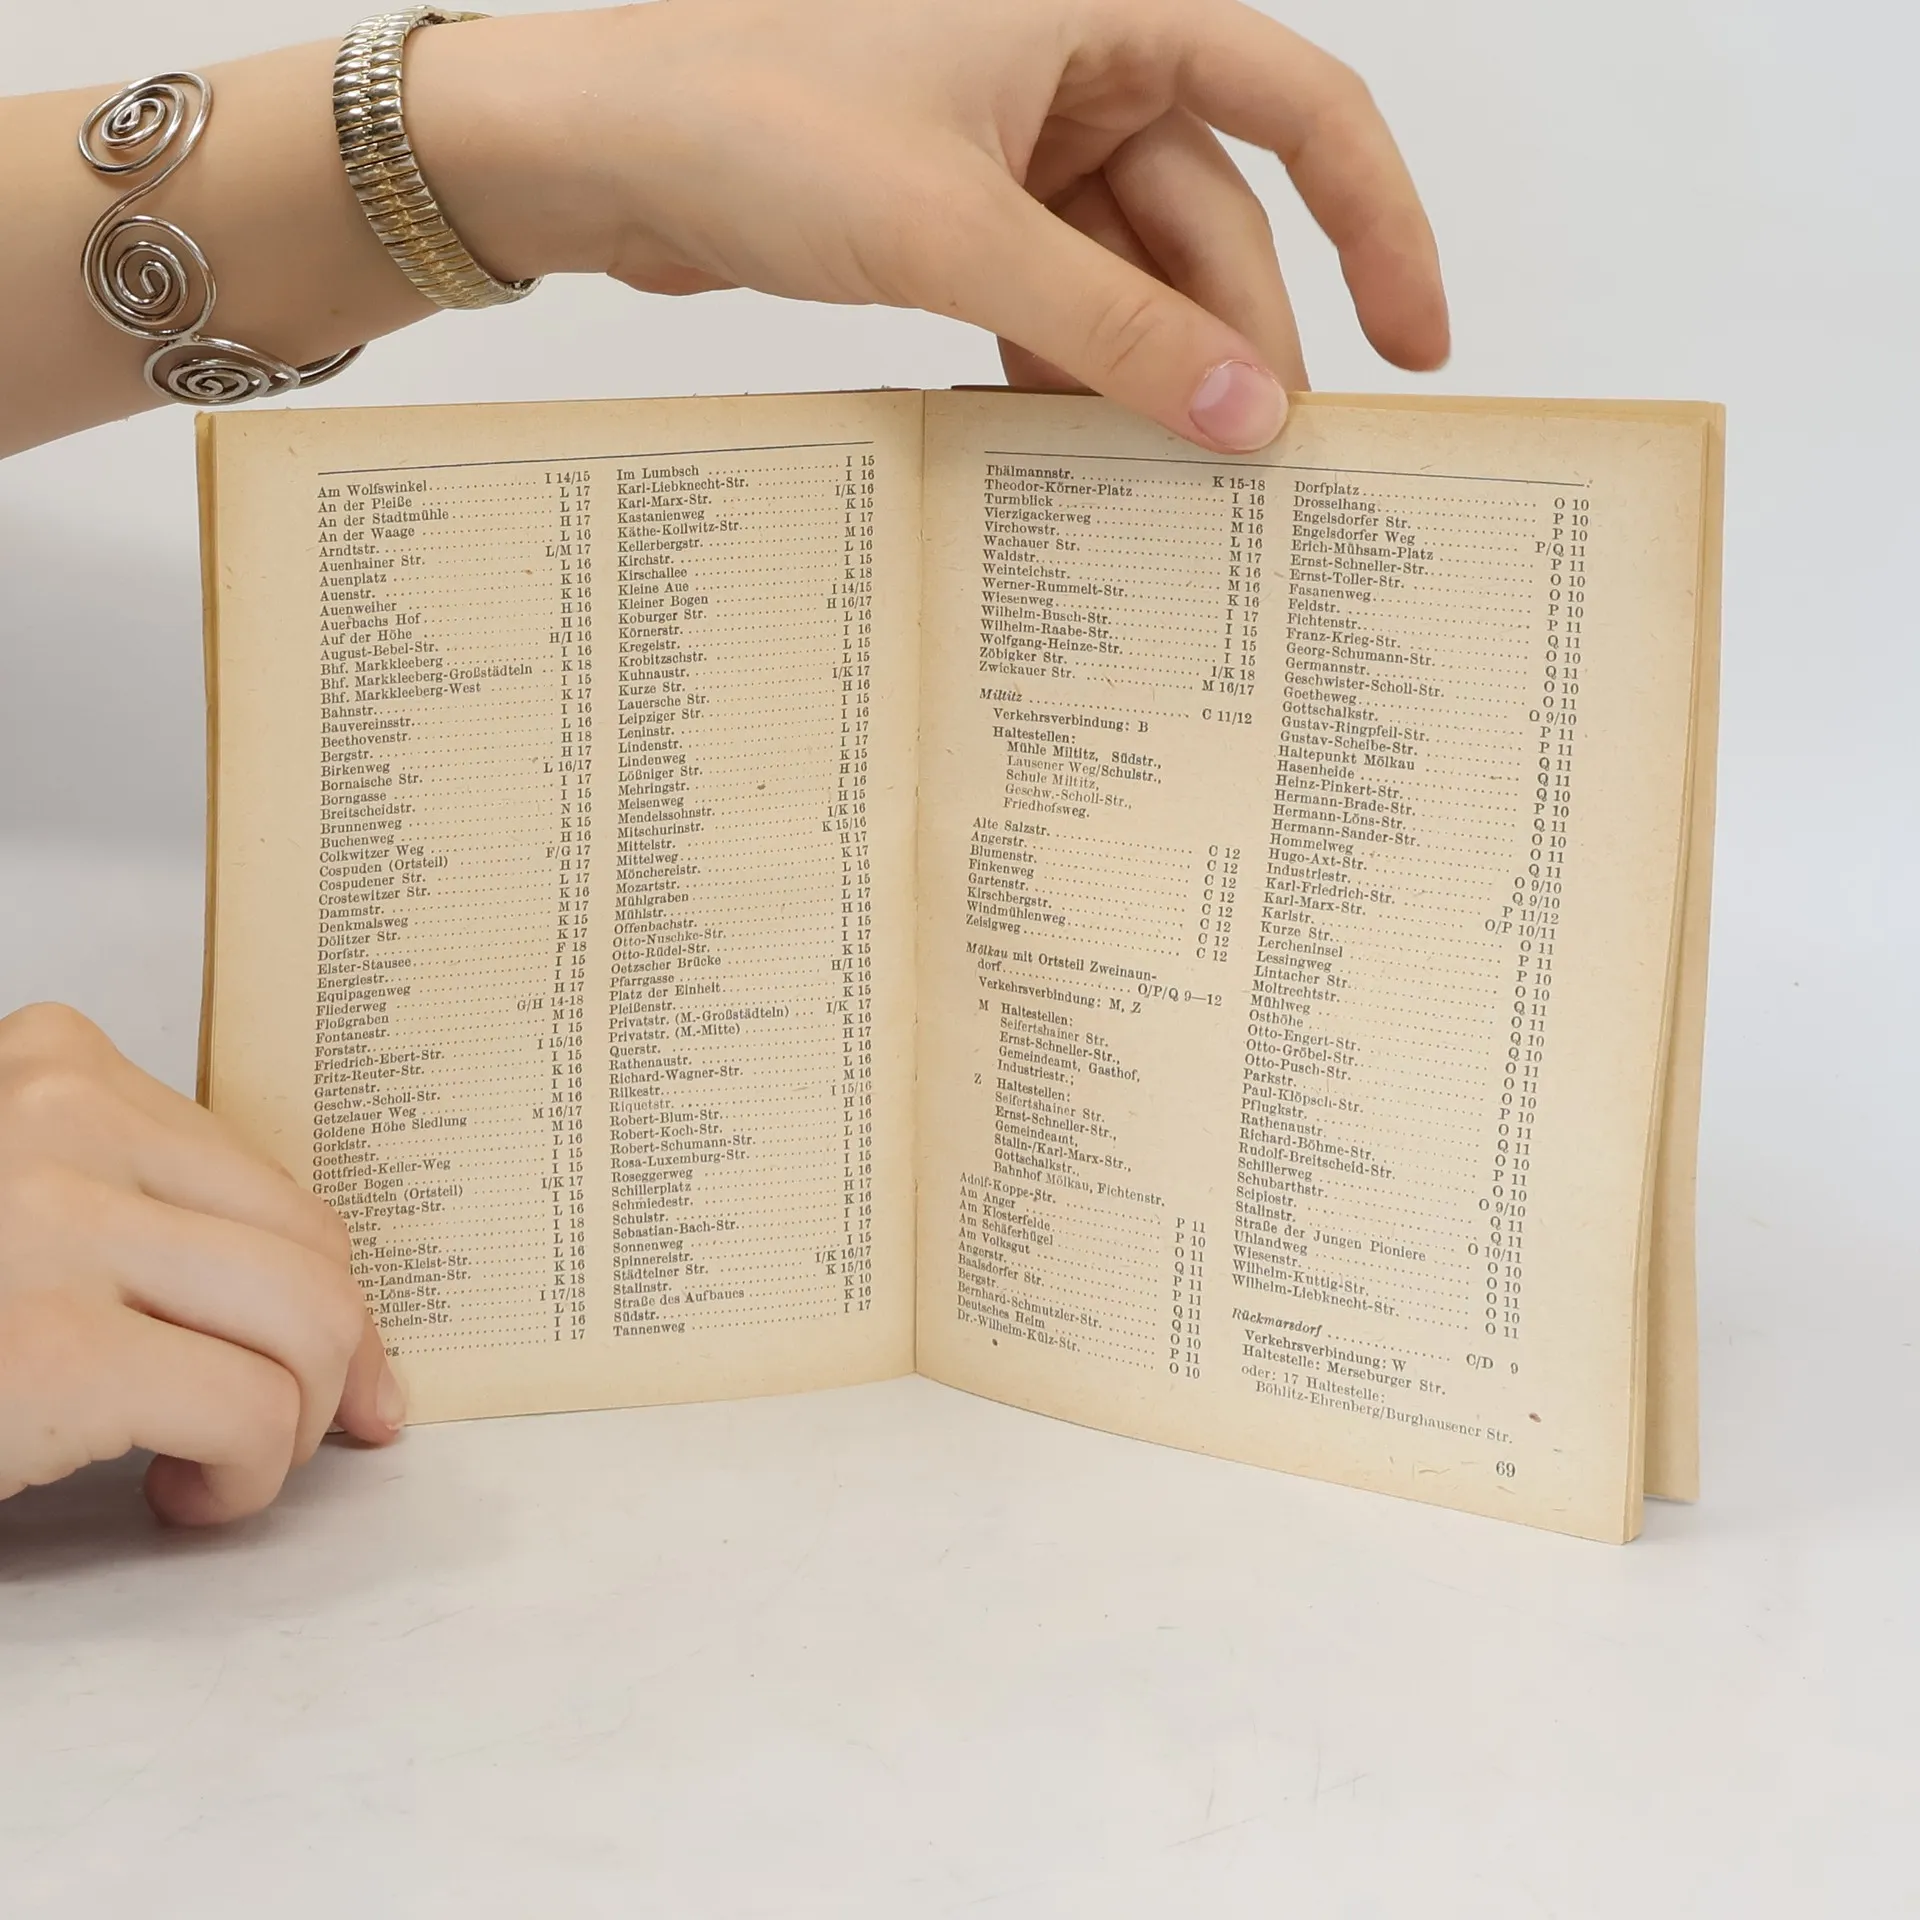 Am Wolfswinkel I 14/15
An der Pleiße L 17
An der Stadtmühle L 17
An der Waage H 17
Arndtstr. L 16
Auenhainer Str. L/M 17
Auenplatz L 16
Auenstr. K 16
Auenweiher K 16
Auerbachs Hof H 16
Auf der Höhe H 16
August-Bebel-Str. H/I 16
Bhf. Markkleeberg I 16
Bhf. Markkleeberg-Großstädteln K 18
Bhf. Markkleeberg-West I 15
Bahnstr. K 17
Bauvereinsstr. I 16
Beethovenstr. L 16
Bergstr. H 18
Birkenweg H 17
Bornaische Str. L 16/17
Borngasse I 17
Breitscheidstr. I 15
Brunnenweg N 16
Buchenweg K 15
Colkwitzer Weg H 16
Cospuden (Ortsteil) F/G 17
Cospudener Str. H 17
Crostewitzer Str. L 17
Dammstr. K 16
Denkmalsweg M 17
Dölitzer Str. K 15
Dorfstr. K 17
Elster-Stausee F 18
Energiestr. I 15
Equipagenweg I 15
Fliederweg H 17
Floßgraben G/H 14-18
Fontanestr. M 16
Forststr. I 15
Friedrich-Ebert-Str. I 15/16
Fritz-Reuter-Str. I 15
Gartenstr. K 16
Geschw.-Scholl-Str. I 16
Getzelauer Weg M 16
Goldene Höhe Siedlung M 16/17
Gorkistr. M 16
Goethestr. L 16
Gottfried-Keller-Weg I 15
Großer Bogen I 15
oßstädteln (Ortsteil) I/K 17
tav-Freytag-Str. I 15
elstr. L 16
weg I 18
ich-Heine-Str. L 16
ich-von-Kleist-Str. L 16
nn-Landman-Str. K 16
n-Löns-Str. K 18
n-Müller-Str. I 17/18
-Schein-Str. L 15
I 16
eg I 17
Im Lumbsch I 15
Karl-Liebknecht-Str. I 16
Karl-Marx-Str. I/K 16
Kastanienweg K 15
Käthe-Kollwitz-Str. I 17
Kellerbergstr. M 16
Kirchstr. L 16
Kirschallee I 15
Kleine Aue K 18
Kleiner Bogen I 14/15
Koburger Str. H 16/17
Körnerstr. L 16
Kregelstr. I 16
Krobitzschstr. L 15
Kuhnaustr. L 15
Kurze Str. I/K 17
Lauersche Str. H 16
Leipziger Str. I 15
Leninstr. I 16
Lindenstr. L 17
Lindenweg I 17
Lößniger Str. K 15
Mehringstr. H 16
Meisenweg I 16
Mendelssohnstr. H 15
Mitschurinstr. I/K 16
Mittelstr. K 15/16
Mittelweg H 17
Möncherelstr. K 17
Mozartstr. L 16
Mühlgraben L 15
Mühlstr. L 17
Offenbachstr. H 16
Otto-Nuschke-Str. I 15
Otto-Rüdel-Str. I 17
Oetzscher Brücke K 15
Pfarrgasse H/I 16
Platz der Einheit K 16
Pleißenstr. K 15
Privatstr. (M.-Großstädteln) I/K 17
Privatstr. (M.-Mitte) K 16
Querstr. H 17
Rathenaustr. L 16
Richard-Wagner-Str. L 16
Rilkestr. M 16
Riquetstr. I 15/16
Robert-Blum-Str. H 16
Robert-Koch-Str. L 16
Robert-Schumann-Str. L 16
Rosa-Luxemburg-Str. I 16
Roseggerweg I 15
Schillerplatz L 16
Schmiedestr. H 17
Schulstr. K 16
Sebastian-Bach-Str. I 16
Sonnenweg I 17
Spinnereistr. I 15
Städtelner Str. I/K 16/17
Stalinstr. K 15/16
Straße des Aufbaues K 10
Südstr. K 16
Tannenweg I 17
Thälmannstr. K 15-18
Theodor-Körner-Platz I 16
Turmblick K 15
Vierzigackerweg M 16
Virchowstr. L 16
Wachauer Str. M 17
Waldstr. K 16
Weinteichstr. M 16
Werner-Rummelt-Str. K 16
Wiesenweg I 17
Wilhelm-Busch-Str. I 15
Wilhelm-Raabe-Str. I 15
Wolfgang-Heinze-Str. I 15
Zöbigker Str. I/K 18
Zwickauer Str. M 16/17
Miltitz C 11/12
Verkehrsverbindung: B
Haltestellen:
Mühle Miltitz, Südstr.,
Lausener Weg/Schulstr.,
Schule Miltitz,
Geschw.-Scholl-Str.,
Friedhofsweg.
Alte Salzstr. C 12
Angerstr. C 12
Blumenstr. C 12
Finkenweg C 12
Gartenstr. C 12
Kirschbergstr. C 12
Windmühlenweg C 12
Zeisigweg C 12
Mölkau mit Ortsteil Zweinaun-
dorf O/P/Q 9—12
Verkehrsverbindung: M, Z
M Haltestellen:
Seifertshainer Str.
Ernst-Schneller-Str.,
Gemeindeamt, Gasthof,
Industriestr.;
Z Haltestellen:
Seifertshainer Str.
Ernst-Schneller-Str.,
Gemeindeamt,
Stalin-/Karl-Marx-Str.,
Gottschalkstr.,
Bahnhof Mölkau, Fichtenstr.
Adolf-Koppe-Str. P 11
Am Anger P 10
Am Klosterfelde O 11
Am Schäferhügel Q 11
Am Volksgut P 11
Angerstr. P 11
Baalsdorfer Str. Q 11
Bergstr. Q 11
Bernhard-Schmutzler-Str. O 10
Deutsches Heim P 11
Dr.-Wilhelm-Külz-Str. O 10
Dorfplatz O 10
Drosselhang P 10
Engelsdorfer Str. P 10
Engelsdorfer Weg P/Q 11
Erich-Mühsam-Platz P 11
Ernst-Schneller-Str. O 10
Ernst-Toller-Str. O 10
Fasanenweg P 10
Feldstr. P 11
Fichtenstr. Q 11
Franz-Krieg-Str. O 10
Georg-Schumann-Str. Q 11
Germannstr. O 10
Geschwister-Scholl-Str. O 11
Goetheweg O 9/10
Gottschalkstr. P 11
Gustav-Ringpfeil-Str. P 11
Gustav-Scheibe-Str. Q 11
Haltepunkt Mölkau Q 11
Hasenheide Q 10
Heinz-Pinkert-Str. P 10
Hermann-Brade-Str. Q 11
Hermann-Löns-Str. O 11
Hermann-Sander-Str. O 10
Hommelweg Q 11
Hugo-Axt-Str. O 9/10
Industriestr. Q 9/10
Karl-Friedrich-Str. P 11/12
Karl-Marx-Str. O/P 10/11
Karlstr. O 11
Kurze Str. P 11
Lercheninsel P 10
Lessingweg O 10
Lintacher Str. Q 11
Moltrechtstr. O 11
Mühlweg Q 10
Osthöhe Q 10
Otto-Engert-Str. O 11
Otto-Gröbel-Str. O 11
Otto-Pusch-Str. O 10
Parkstr. P 10
Paul-Klöpsch-Str. O 11
Pflugkstr. Q 11
Rathenaustr. O 10
Richard-Böhme-Str. P 11
Rudolf-Breitscheid-Str. O 10
Schillerweg O 9/10
Schubarthstr. Q 11
Scipiostr. Q 11
Stalinstr. O 10/11
Straße der Jungen Pioniere O 10
Uhlandweg O 10
Wiesenstr. O 11
Wilhelm-Kuttig-Str. O 10
Wilhelm-Liebknecht-Str. O 11
Rückmarsdorf C/D 9
Verkehrsverbindung: W
Haltestelle: Merseburger Str.
oder: 17 Haltestelle:
Böhlitz-Ehrenberg/Burghausener Str.
69